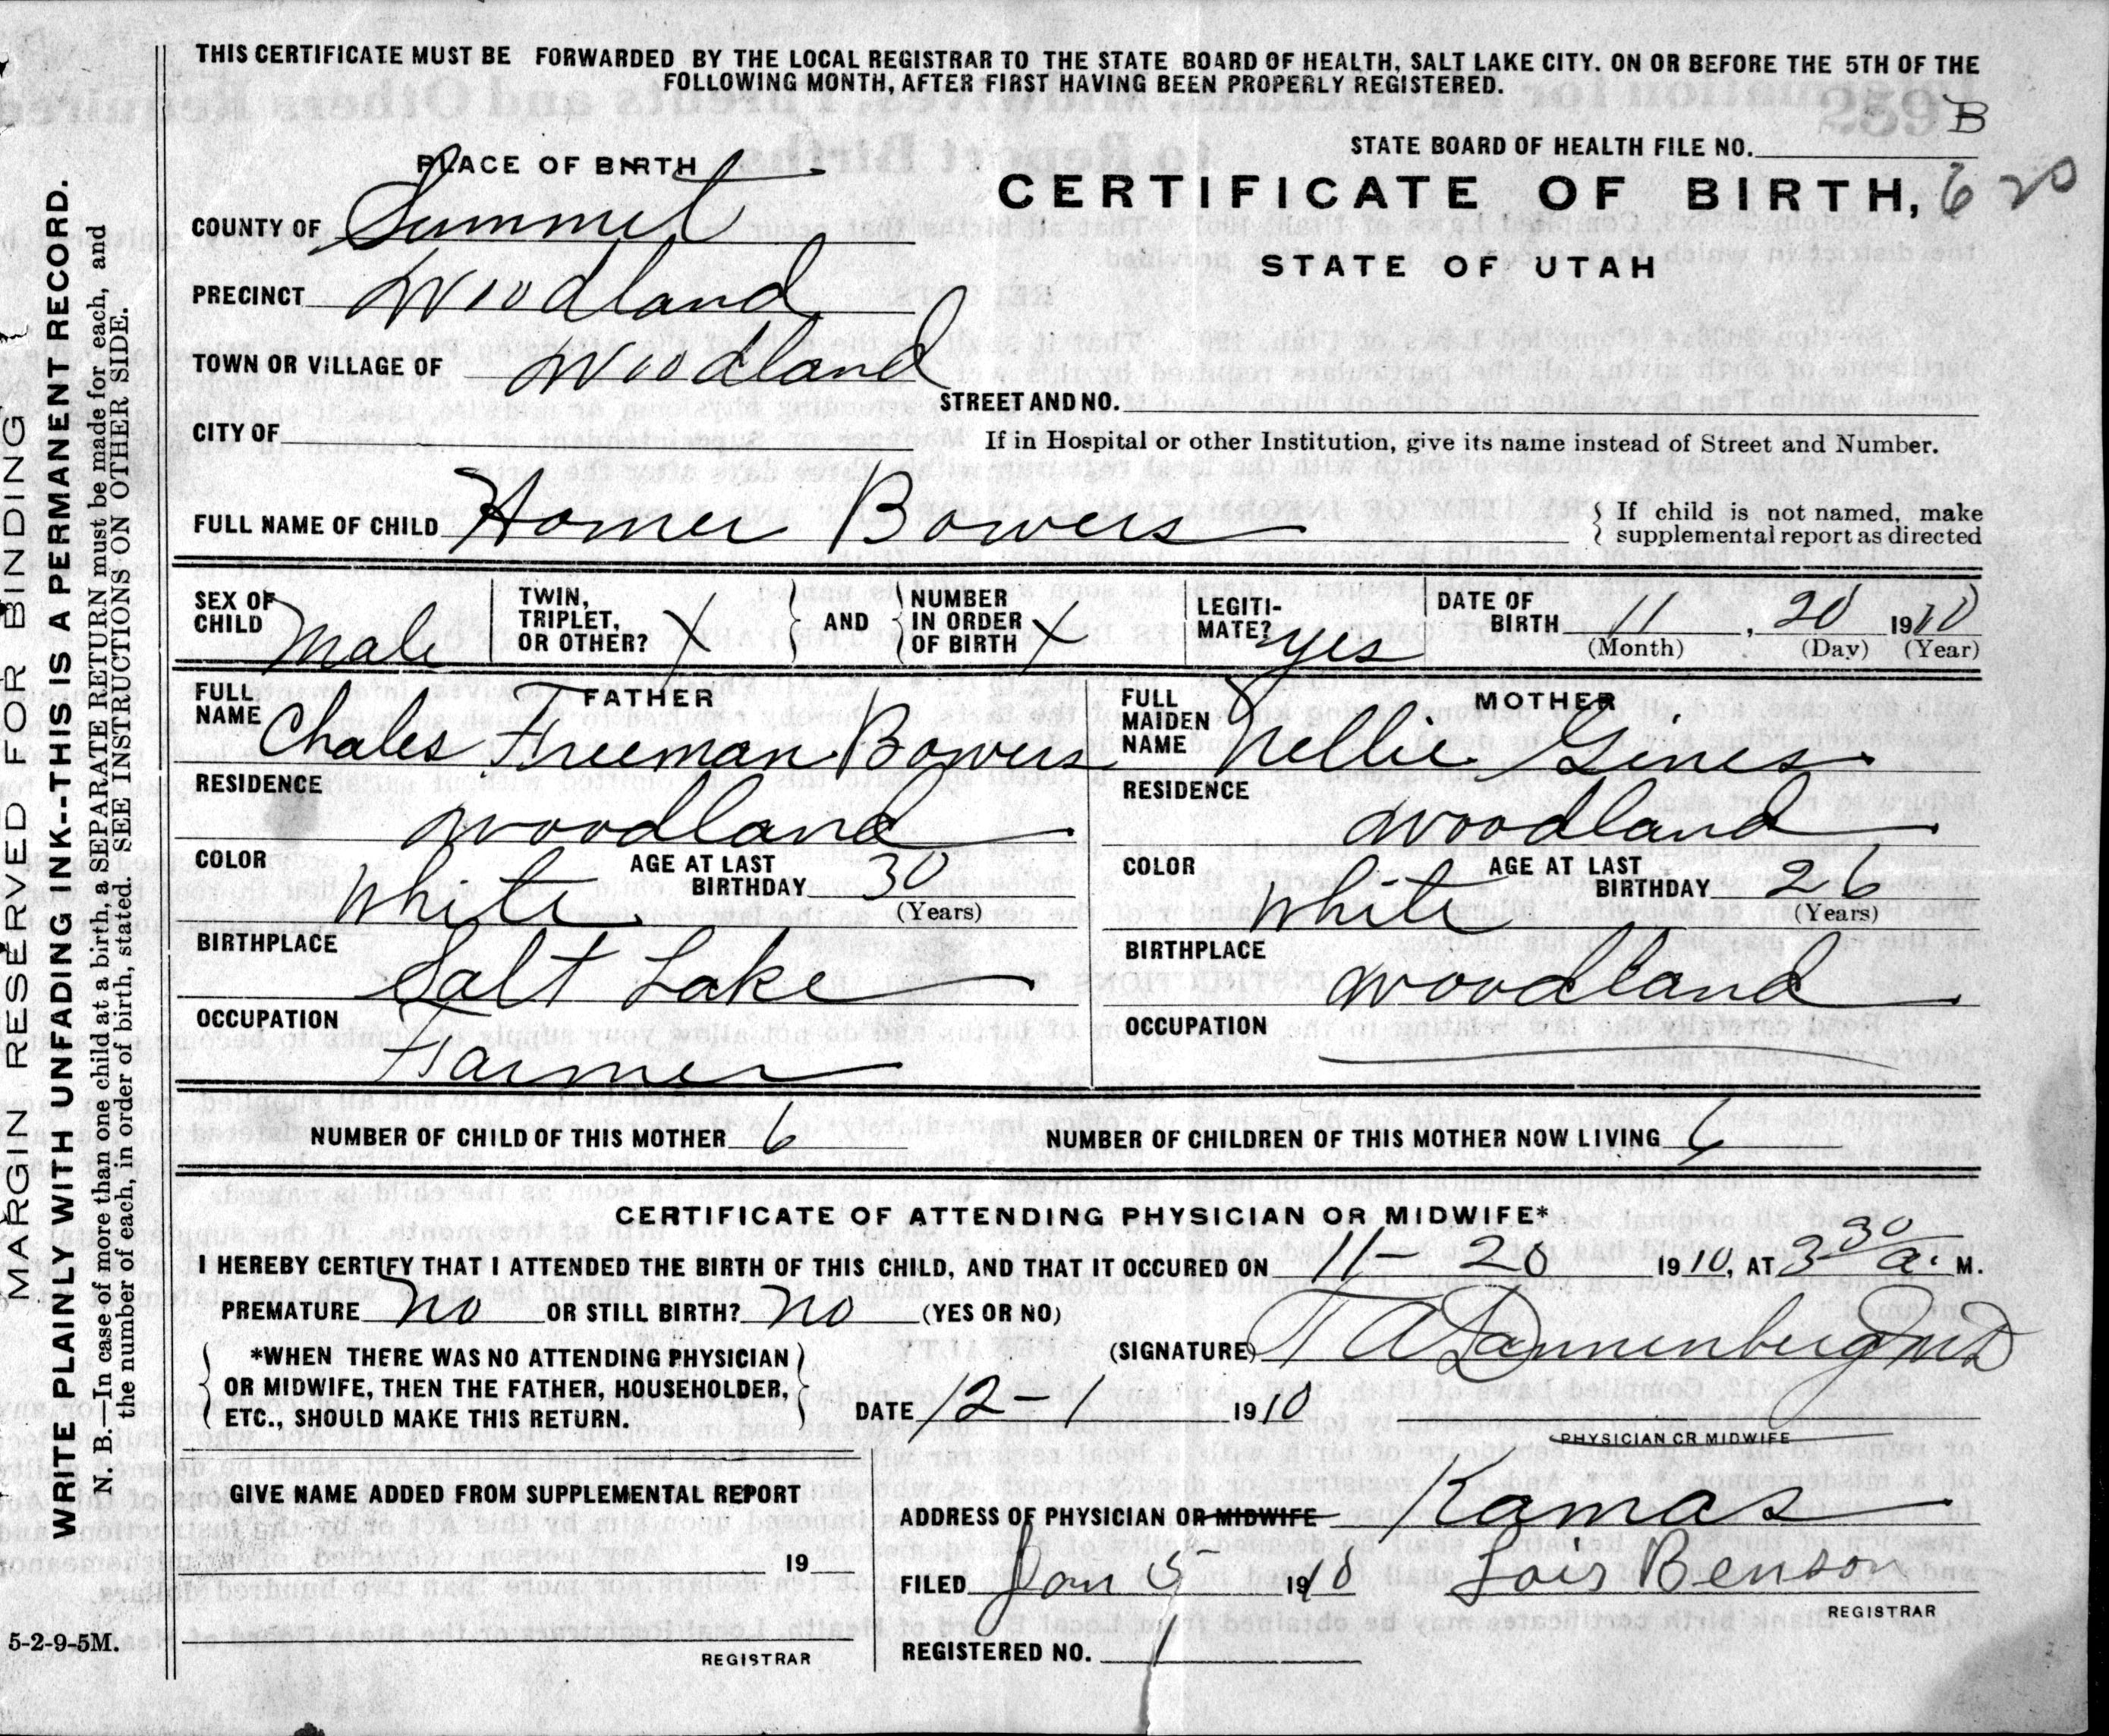 THIS CERTIFICATE MUST BE FORWARDED BY THE LOCAL REGISTRAR TO THE STATE BOARD OF HEALTH, SALT LAKE CITY. ON OR BEFORE THE 5TH OF THE
FOLLOWING MONTH, AFTER FIRST HAVING BEEN PROPERLY REGISTERED.
B
STATE BOARD OF HEALTH FILE NO.
PLACE OF BIRTH
CERTIFICATE OF BIRTH, 620
STATE OF UTAH
COUNTY OF Summit
PRECINCT Woodland
TOWN OR VILLAGE OF Woodland
STREET AND NO.
CITY OF
If in Hospital or other Institution, give its name instead of Street and Number.
FULL NAME OF CHILD Homer Bowers
If child is not named, make
supplemental report as directed
SEX OF CHILD Male
TWIN, TRIPLET, OR OTHER? X
AND
NUMBER IN ORDER OF BIRTH X
LEGITI-MATE? yes
DATE OF BIRTH 11, 20 1910
(Month) (Day) (Year)
FATHER
FULL NAME Chales Freeman Bowers
RESIDENCE Woodland
COLOR White AGE AT LAST BIRTHDAY 30
(Years)
BIRTHPLACE Salt Lake
OCCUPATION Farmer
MOTHER
FULL MAIDEN NAME Nellie Gines
RESIDENCE Woodland
COLOR White AGE AT LAST BIRTHDAY 26
(Years)
BIRTHPLACE Woodland
OCCUPATION
NUMBER OF CHILD OF THIS MOTHER 6 NUMBER OF CHILDREN OF THIS MOTHER NOW LIVING 6
CERTIFICATE OF ATTENDING PHYSICIAN OR MIDWIFE*
I HEREBY CERTIFY THAT I ATTENDED THE BIRTH OF THIS CHILD, AND THAT IT OCCURED ON 11-20 1910, AT 3 30 a. M.
PREMATURE no OR STILL BIRTH? no (YES OR NO)
(SIGNATURE) T A Dannenberg MD
*WHEN THERE WAS NO ATTENDING PHYSICIAN
OR MIDWIFE, THEN THE FATHER, HOUSEHOLDER,
ETC., SHOULD MAKE THIS RETURN.
DATE 12-1 1910
PHYSICIAN OR MIDWIFE
GIVE NAME ADDED FROM SUPPLEMENTAL REPORT
19
REGISTRAR
ADDRESS OF PHYSICIAN OR MIDWIFE Kamas
FILED Jan 1910 Lois Benson
REGISTRAR
REGISTERED NO.
MARGIN RESERVED FOR BINDING
WRITE PLAINLY WITH UNFADING INK--THIS IS A PERMANENT RECORD.
N. B.—In case of more than one child at a birth, a SEPARATE RETURN must be made for each, and
the number of each, in order of birth, stated. SEE INSTRUCTIONS ON OTHER SIDE.
5-2-9-5M.